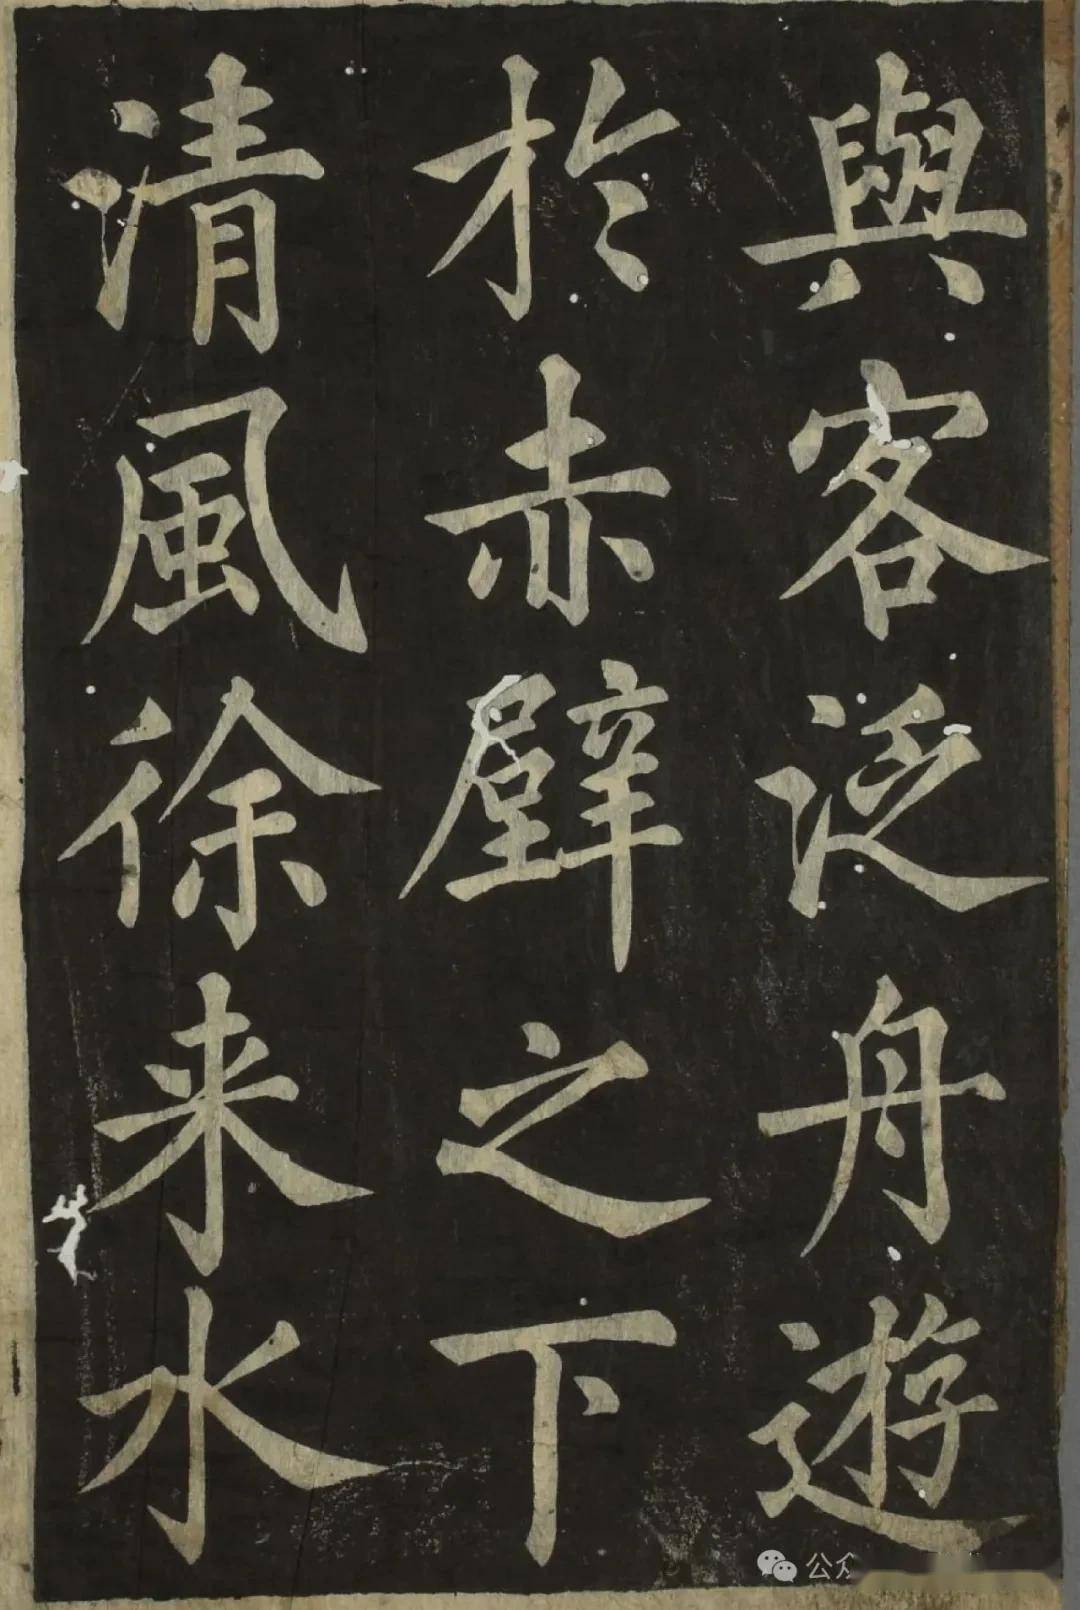 與客泛舟遊
於赤壁之下
清風徐来水
公众